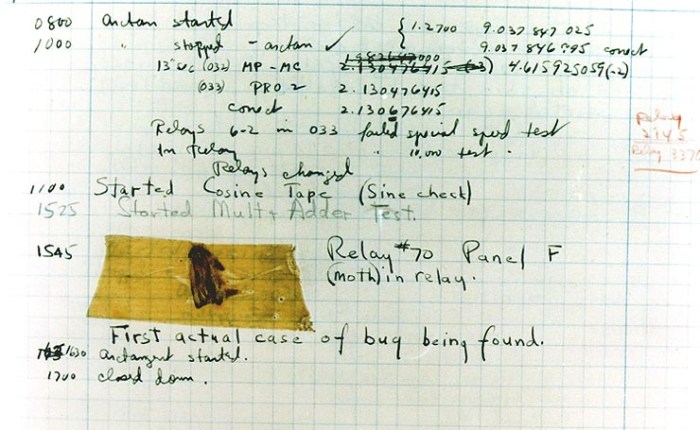 0800 arctan started { 1.2700 9.037 847 025
1000 " stopped - arctan ✓ 9.037 846 995 correct
13"uc (032) MP - MC 2.130476415 4.615925059(-2)
(033) PRO 2 2.130476415
correct 2.130676415
Relays 6-2 in 033 failed special speed test
In Relay " 10,000 test .
Relays changed
Relay
2145
Relay 3370
1100 Started Cosine Tape (Sine check)
1525 Started Mult + Adder Test.
1545 Relay #70 Panel F
(moth) in relay.
First actual case of bug being found.
1630 arctangent started.
1700 closed down.